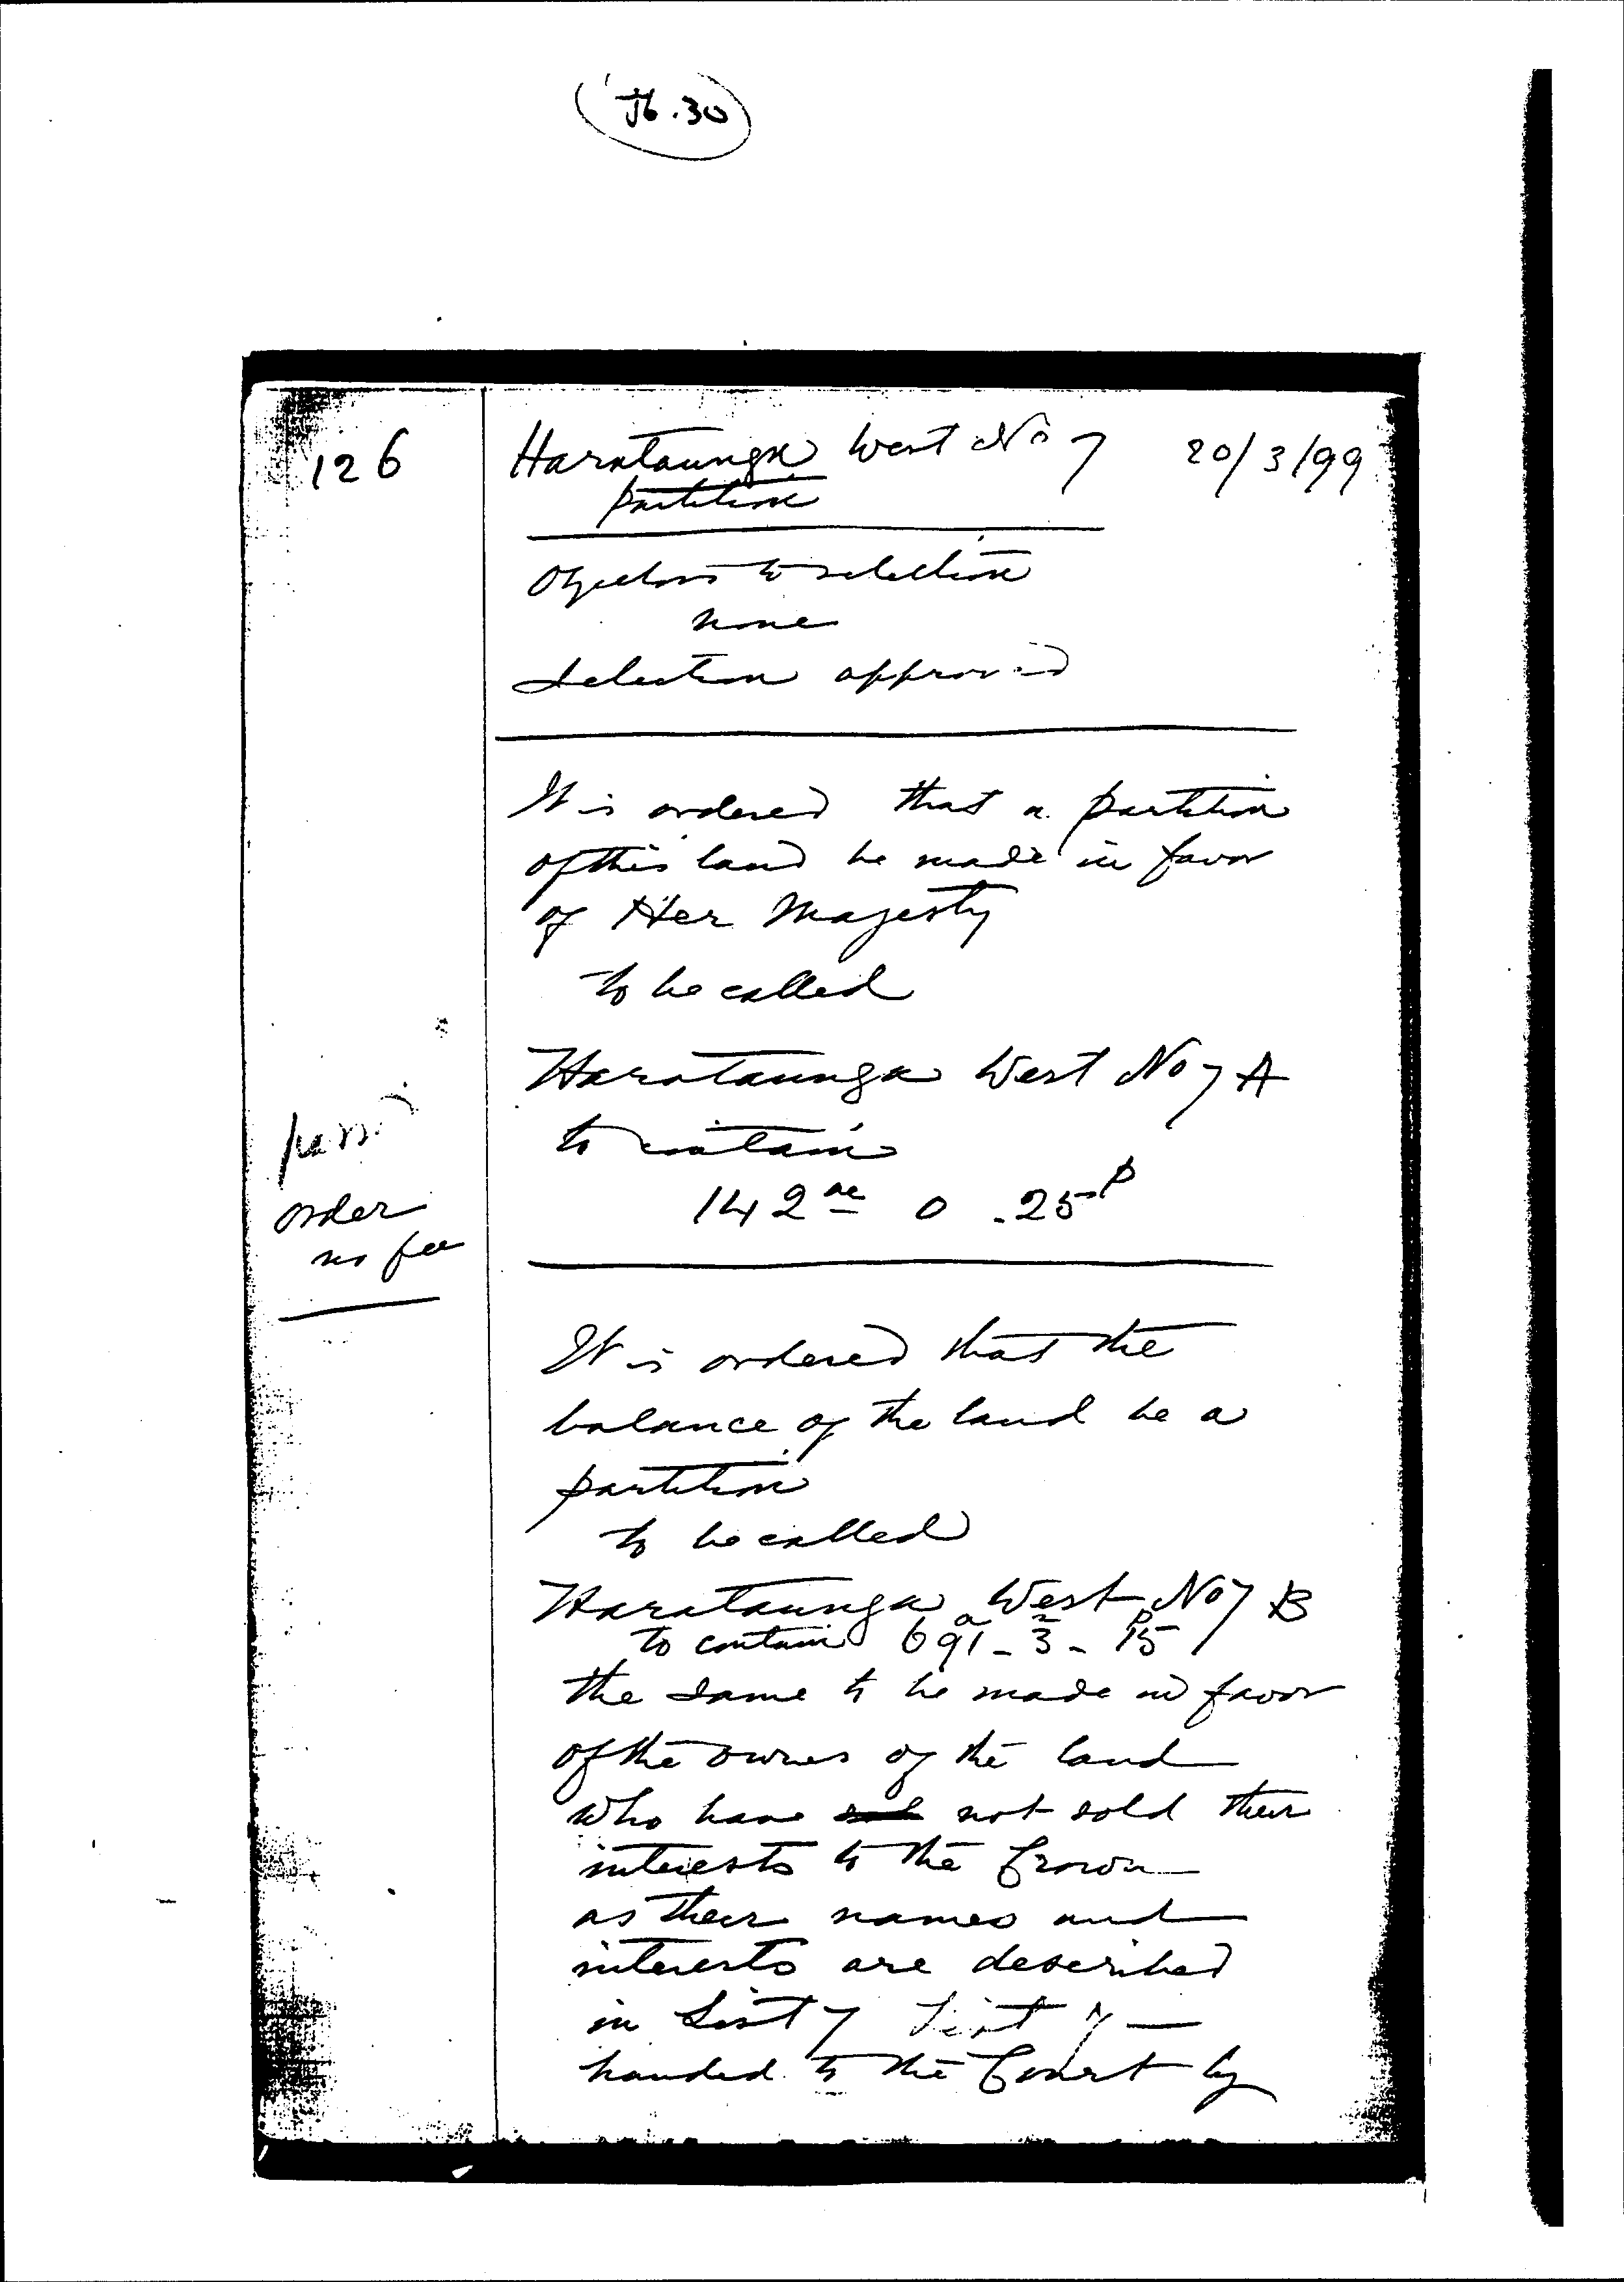 J6.30
126
Harataunga West No 7 20/3/99
partition
Objectors to selection
none
Selection approved
It is ordered that a partition
of this land be made in favor
of Her Majesty
to be called
Harataunga West No 7 A
to contain
142 ac 0 . 25 p
order
no fee
It is ordered that the
balance of the land be a
partition
to be called
Harataunga West No 7 B
to contain 691 a - 3 - 15 p
the same to be made in favor
of the owners of the land
who have not sold their
interests to the Crown
as their names and
interests are described
in List 7 List 7 —
handed to the Court by